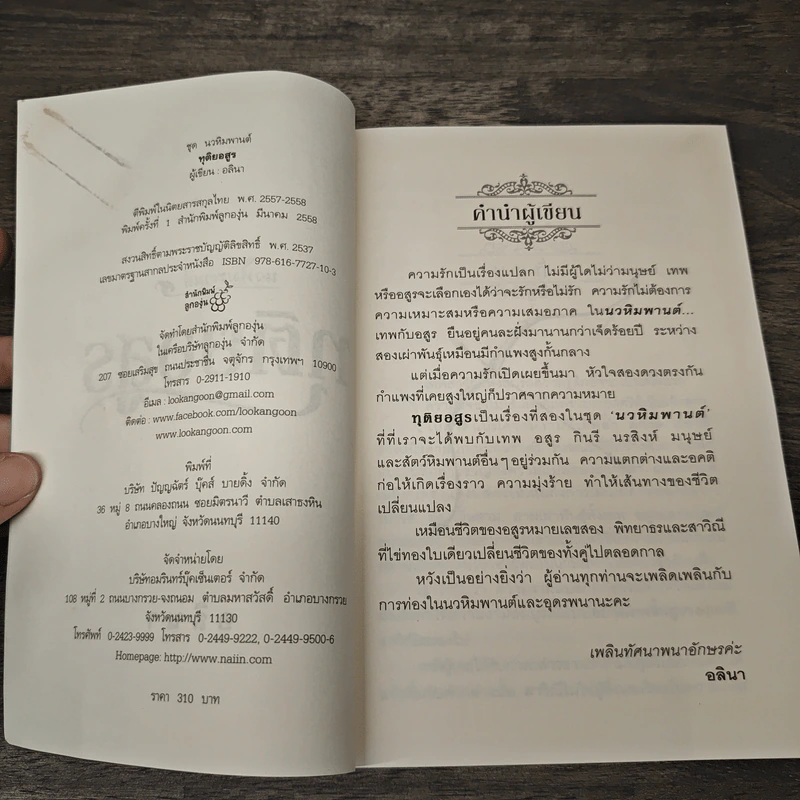 ชุด นวหิมพานต์
ทุติยอสูร
ผู้เขียน : อลินา
ตีพิมพ์ในนิตยสารสกุลไทย พ.ศ. 2557-2558
พิมพ์ครั้งที่ 1 สำนักพิมพ์ลูกองุ่น มีนาคม 2558
สงวนสิทธิ์ตามพระราชบัญญัติลิขสิทธิ์ พ.ศ. 2537
เลขมาตรฐานสากลประจำหนังสือ ISBN 978-616-7727-10-3
สำนักพิมพ์
ลูกองุ่น
จัดทำโดยสำนักพิมพ์ลูกองุ่น
ในเครือบริษัทลูกองุ่น จำกัด
207 ซอยเสริมสุข ถนนประชาชื่น จตุจักร กรุงเทพฯ 10900
โทรสาร 0-2911-1910
อีเมล : lookangoon@gmail.com
ติดต่อ : www.facebook.com/lookangoon
www.lookangoon.com
พิมพ์ที่
บริษัท ปัญญฉัตร์ บุ๊คส์ บายดิ้ง จำกัด
36 หมู่ 8 ถนนคลองถนน ซอยมิตรนาวี ตำบลเสาธงหิน
อำเภอบางใหญ่ จังหวัดนนทบุรี 11140
จัดจำหน่ายโดย
บริษัทอมรินทร์บุ๊คเซ็นเตอร์ จำกัด
108 หมู่ที่ 2 ถนนบางกรวย-จงถนอม ตำบลมหาสวัสดิ์ อำเภอบางกรวย
จังหวัดนนทบุรี 11130
โทรศัพท์ 0-2423-9999 โทรสาร 0-2449-9222, 0-2449-9500-6
Homepage: http://www.naiin.com
ราคา 310 บาท
คำนำผู้เขียน
ความรักเป็นเรื่องแปลก ไม่มีผู้ใดไม่ว่ามนุษย์ เทพ
หรืออสูรจะเลือกเองได้ว่าจะรักหรือไม่รัก ความรักไม่ต้องการ
ความเหมาะสมหรือความเสมอภาค ในนวหิมพานต์...
เทพกับอสูร ยืนอยู่คนละฝั่งมานานกว่าเจ็ดร้อยปี ระหว่าง
สองเผ่าพันธุ์เหมือนมีกำแพงสูงกั้นกลาง
แต่เมื่อความรักเปิดเผยขึ้นมา หัวใจสองดวงตรงกัน
กำแพงที่เคยสูงใหญ่ก็ปราศจากความหมาย
ทุติยอสูรเป็นเรื่องที่สองในชุด ‘นวหิมพานต์’
ที่ที่เราจะได้พบกับเทพ อสูร กินรี นรสิงห์ มนุษย์
และสัตว์หิมพานต์อื่นๆอยู่ร่วมกัน ความแตกต่างและอคติ
ก่อให้เกิดเรื่องราว ความมุ่งร้าย ทำให้เส้นทางของชีวิต
เปลี่ยนแปลง
เหมือนชีวิตของอสูรหมายเลขสอง พิทยาธรและสาวิณี
ที่ไข่ทองใบเดียวเปลี่ยนชีวิตของทั้งคู่ไปตลอดกาล
หวังเป็นอย่างยิ่งว่า ผู้อ่านทุกท่านจะเพลิดเพลินกับ
การท่องในนวหิมพานต์และอุดรพนานะคะ
เพลินทัศนาพนาอักษรค่ะ
อลินา